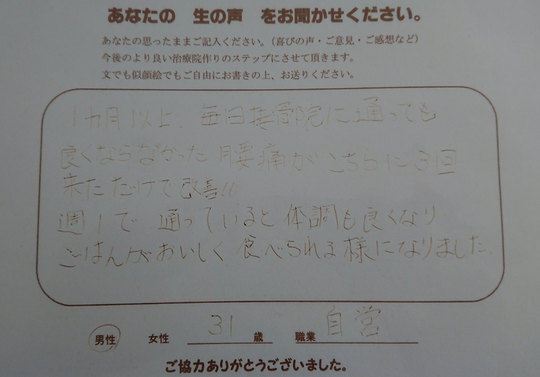 あなたの 生の声 をお聞かせください。
あなたの思ったままご記入ください。（喜びの声・ご意見・ご感想など）
今後のより良い治療院作りのステップにさせて頂きます。
文でも似顔絵でもご自由にお書きの上、お送りください。
1ヵ月以上、毎日接骨院に通っても
良くならなかった腰痛がこちらに3回
来ただけで改善!!
週1で通っていると体調も良くなり
ごはんがおいしく食べられる様になりました。
男性 女性 31 歳 職業 自営
ご協力ありがとうございました。